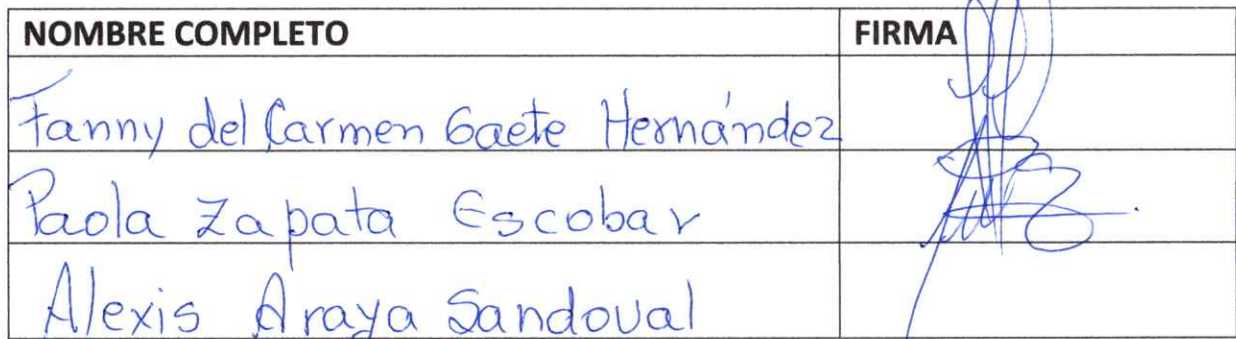 NOMBRE COMPLETO FIRMA
Fanny del Carmen Gaete Hernández
Paola Zapata Escobar
Alexis Araya Sandoval